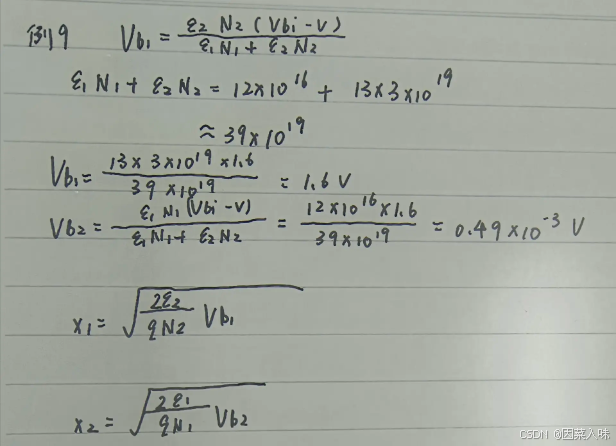 例9 Vb1 = ε2 N2 (Vbi-V) / ε1 N1 + ε2 N2
ε1 N1 + ε2 N2 = 12×10^16 + 13×3×10^19
≈ 39×10^19
Vb1 = 13×3×10^19×1.6 / 39×10^19 = 1.6 V
Vb2 = ε1 N1 (Vbi-V) / ε1 N1 + ε2 N2 = 12×10^16×1.6 / 39×10^19 = 0.49×10^-3 V
x1 = √(2ε2 / qN2 Vb1)
x2 = √(2ε1 / qN1 Vb2)
CSDN @因菜入味